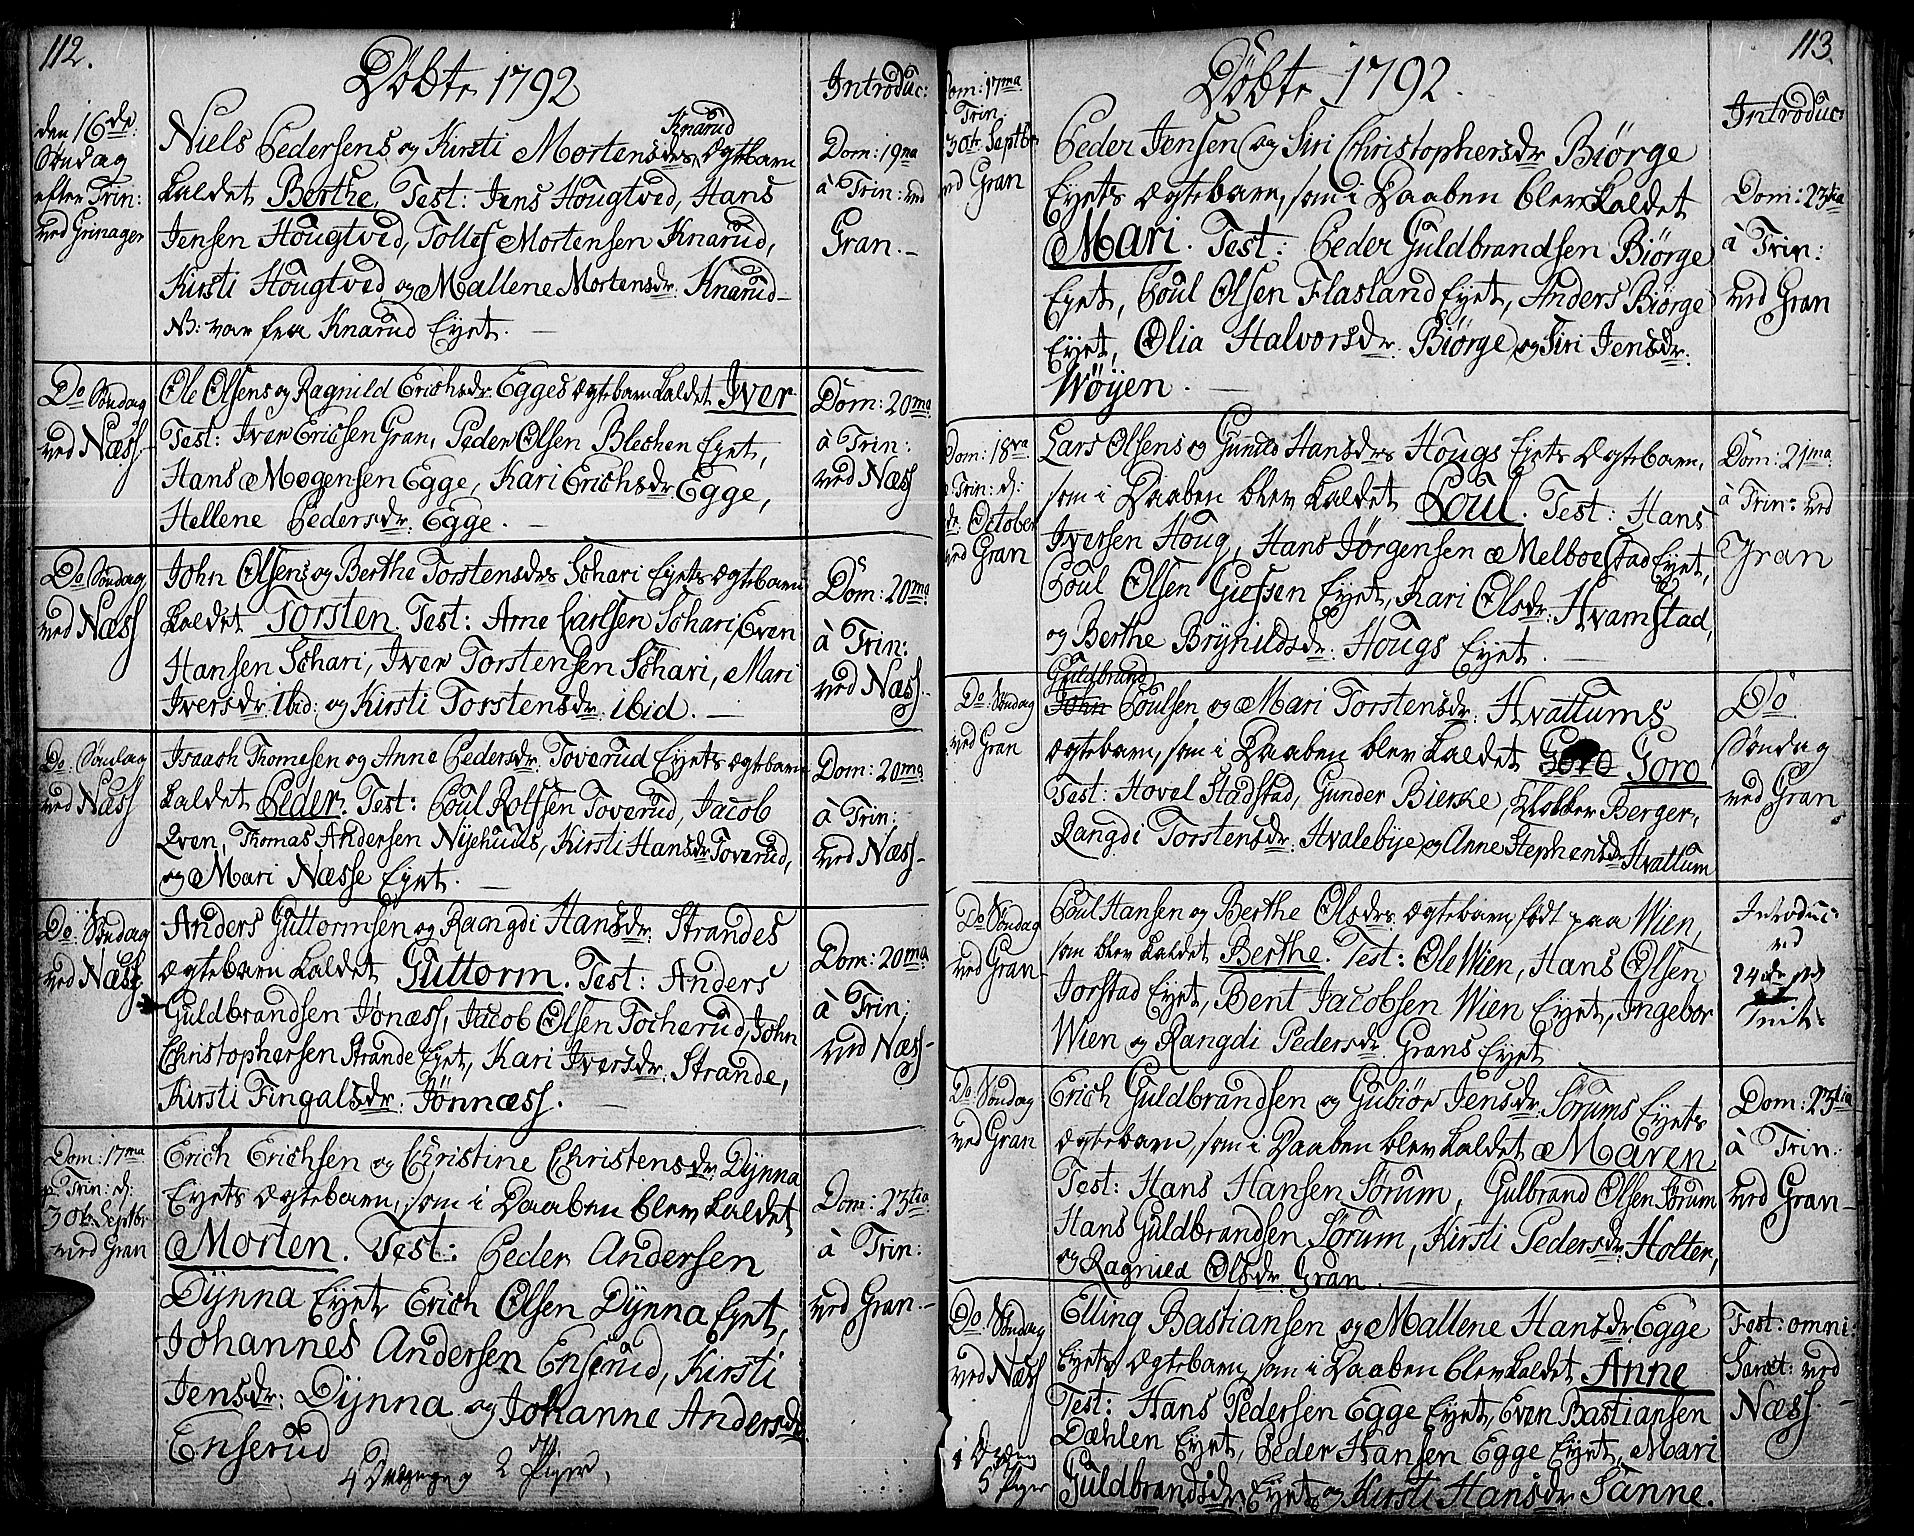 112.
Døbte 1792
Introduc:
den 16de
Søndag
efter Trin:
ved Grinager
Niels Pedersens og Kirsti Mortensdrs Knarud Ægtebarn
kaldet Berthe, Test: Jens Hougtved, Hans
Jensen Hougtvid, Tollef Mortensen Knarud,
Kirsti Hougtved og Mallene Mortensdr. Knarud
NB: var fra Knarud Eyet.
Dom: 19na
à Trin: ved
Gran.
Do Søndag
ved Næss
Ole Olsens og Ragnild Erichsdr. Egges Ægtebarn kaldet Iver
Test: Iver Ericsen Gran, Peder Olsen Blechen Eyet,
Hans Mogensen Egge, Kari Erichsdr Egge,
Hellene Pedersdr. Egge.
Dom: 20ma
à Trin:
ved Næss
Do Søndag
ved Næss
John Olsens og Berthe Torstensdrs Schari Eyets Ægtebarn
kaldet Torsten. Test: Arne Carlsen Schari, Even
Hansen Schari, Iver Torstensen Schari, Mari
Iversdr. ibid: og Kirsti Torstensdr. ibid.
Dom: 20ma
à Trin:
ved Næss.
Do Søndag
ved Næss
Isaach Thomesen og Anne Pedersdr. Toverud Eyets Ægtebarn
kaldet Peder. Test: Poul Rolfsen Toverud, Jacob
Qven, Thomas Andersen Nysehuus, Kirsti Hansdr Toverud,
og Mari Næsse Eyet.
Dom: 20ma
à Trin:
ved Næss
Do Søndag
ved Næss
Anders Guttormsen og Raangdi Hansdr. Strandes
Ægtebarn kaldet Guttorm. Test: Anders
Guldbrandsen Jønæss, Jacob Olsen Tocherud, John
Christophersen Strande Eyet, Kari Iversdr. Strande,
Kirsti Fingalsdr. Jønnæss.
Dom: 20ma
à Trin:
ved Næss
Dom: 17ma
p Trin: d:
30te Septbr
ved Gran
Erich Erichsen og Christine Christensdr. Dynna
Eyets Ægtebarn, som i Daaben blev kaldet
Morten. Test: Peder Andersen
Dynna Eyet Erich Olsen Dynna Eyet,
Johannes Andersen Enserud, Kirsti
Jensdr: Dynna og Johanne Andersdr.
Enserud
Dom: 23tia
à Trin:
ved Gran.
4 Drenge og 2 Piger,
113.
Døbte 1792.
Introduc:
Dom: 17ma
Trin:
30te Septbr
ved Gran
Peder Jensen og Siri Christophersdr Biørge
Eyets Ægtebarn, som i Daaben blev kaldet
Mari. Test: Peder Guldbrandsen Biørge
Eyet, Poul Olsen Flasland Eyet, Anders Biørge
Eyet, Olia Halvorsdr. Biørge og Siri Jensdr.
Wøyen.
Dom: 23tia
à Trin:
ved Gran
Dom: 18va
Trin: d:
October
ved Gran
Lars Olsens og Gunild Hansdrs Hougs Eyets Ægtebarn,
som i Daaben blev kaldet Poul. Test: Hans
Iversen Houg, Hans Jørgensen Melboestad Eyet,
Poul Olsen Giefsen Eyet, Kari Olsdr. Hvamstad,
og Berthe Brynildsdr. Hougs Eyet.
Dom: 21ma
à Trin: ved
Gran
Do Søndag
ved Gran
Guldbrand
John Poulsen og Mari Torstensdr. Hvattums
Ægtebarn, som i Daaben blev kaldet Goro Goro
Test: Hovel Stadstad, Gunder Bierke, Klobber Berger,
Rangdi Torstensdr. Hvalebye og Anne Stephensdr Hvattum
Do
Søndag
ved Gran
Do Søndag
ved Gran
Poul Hansen og Berthe Olsdrs. Ægtebarn, født paa Wien,
som blev kaldet Berthe. Test: Ole Wien, Hans Olsen
Jorstad Eyet, Bent Jacobsen Wien Eyet, Ingebor
Wien og Rangdi Pedersdr. Grans Eyet
Introduc:
ved
24de
Do Søndag
ved Gran
Erich Guldbrandsen og Gubiør Jensdr. Sørums Eyets
Ægtebarn, som i Daaben blev kaldet Maren
Test: Hans Hansen Sørum, Gulbrand Olsen Sørum
Hans Guldbrandsen Sørum, Kirsti Pedersdr. Holter,
og Ragnild Olsdr. Gran.
Dom: 23tia
à Trin:
ved Gran
Do Søndag
ved Næss
Elling Bastiansen og Mallene Hansdr. Egge
Eyets Ægtebarn, som i Daaben blev kaldet Anne
Test: Hans Pedersen Egge Eyet, Even Bastiansen
Dæhlen Eyet, Peder Hansen Egge Eyet, Mari
Guldbrandsdr Eyet og Kirsti Hansdr Sanne.
Fest: omni:
Sanct: ved
Næss.
1 Dreng
5 Piger